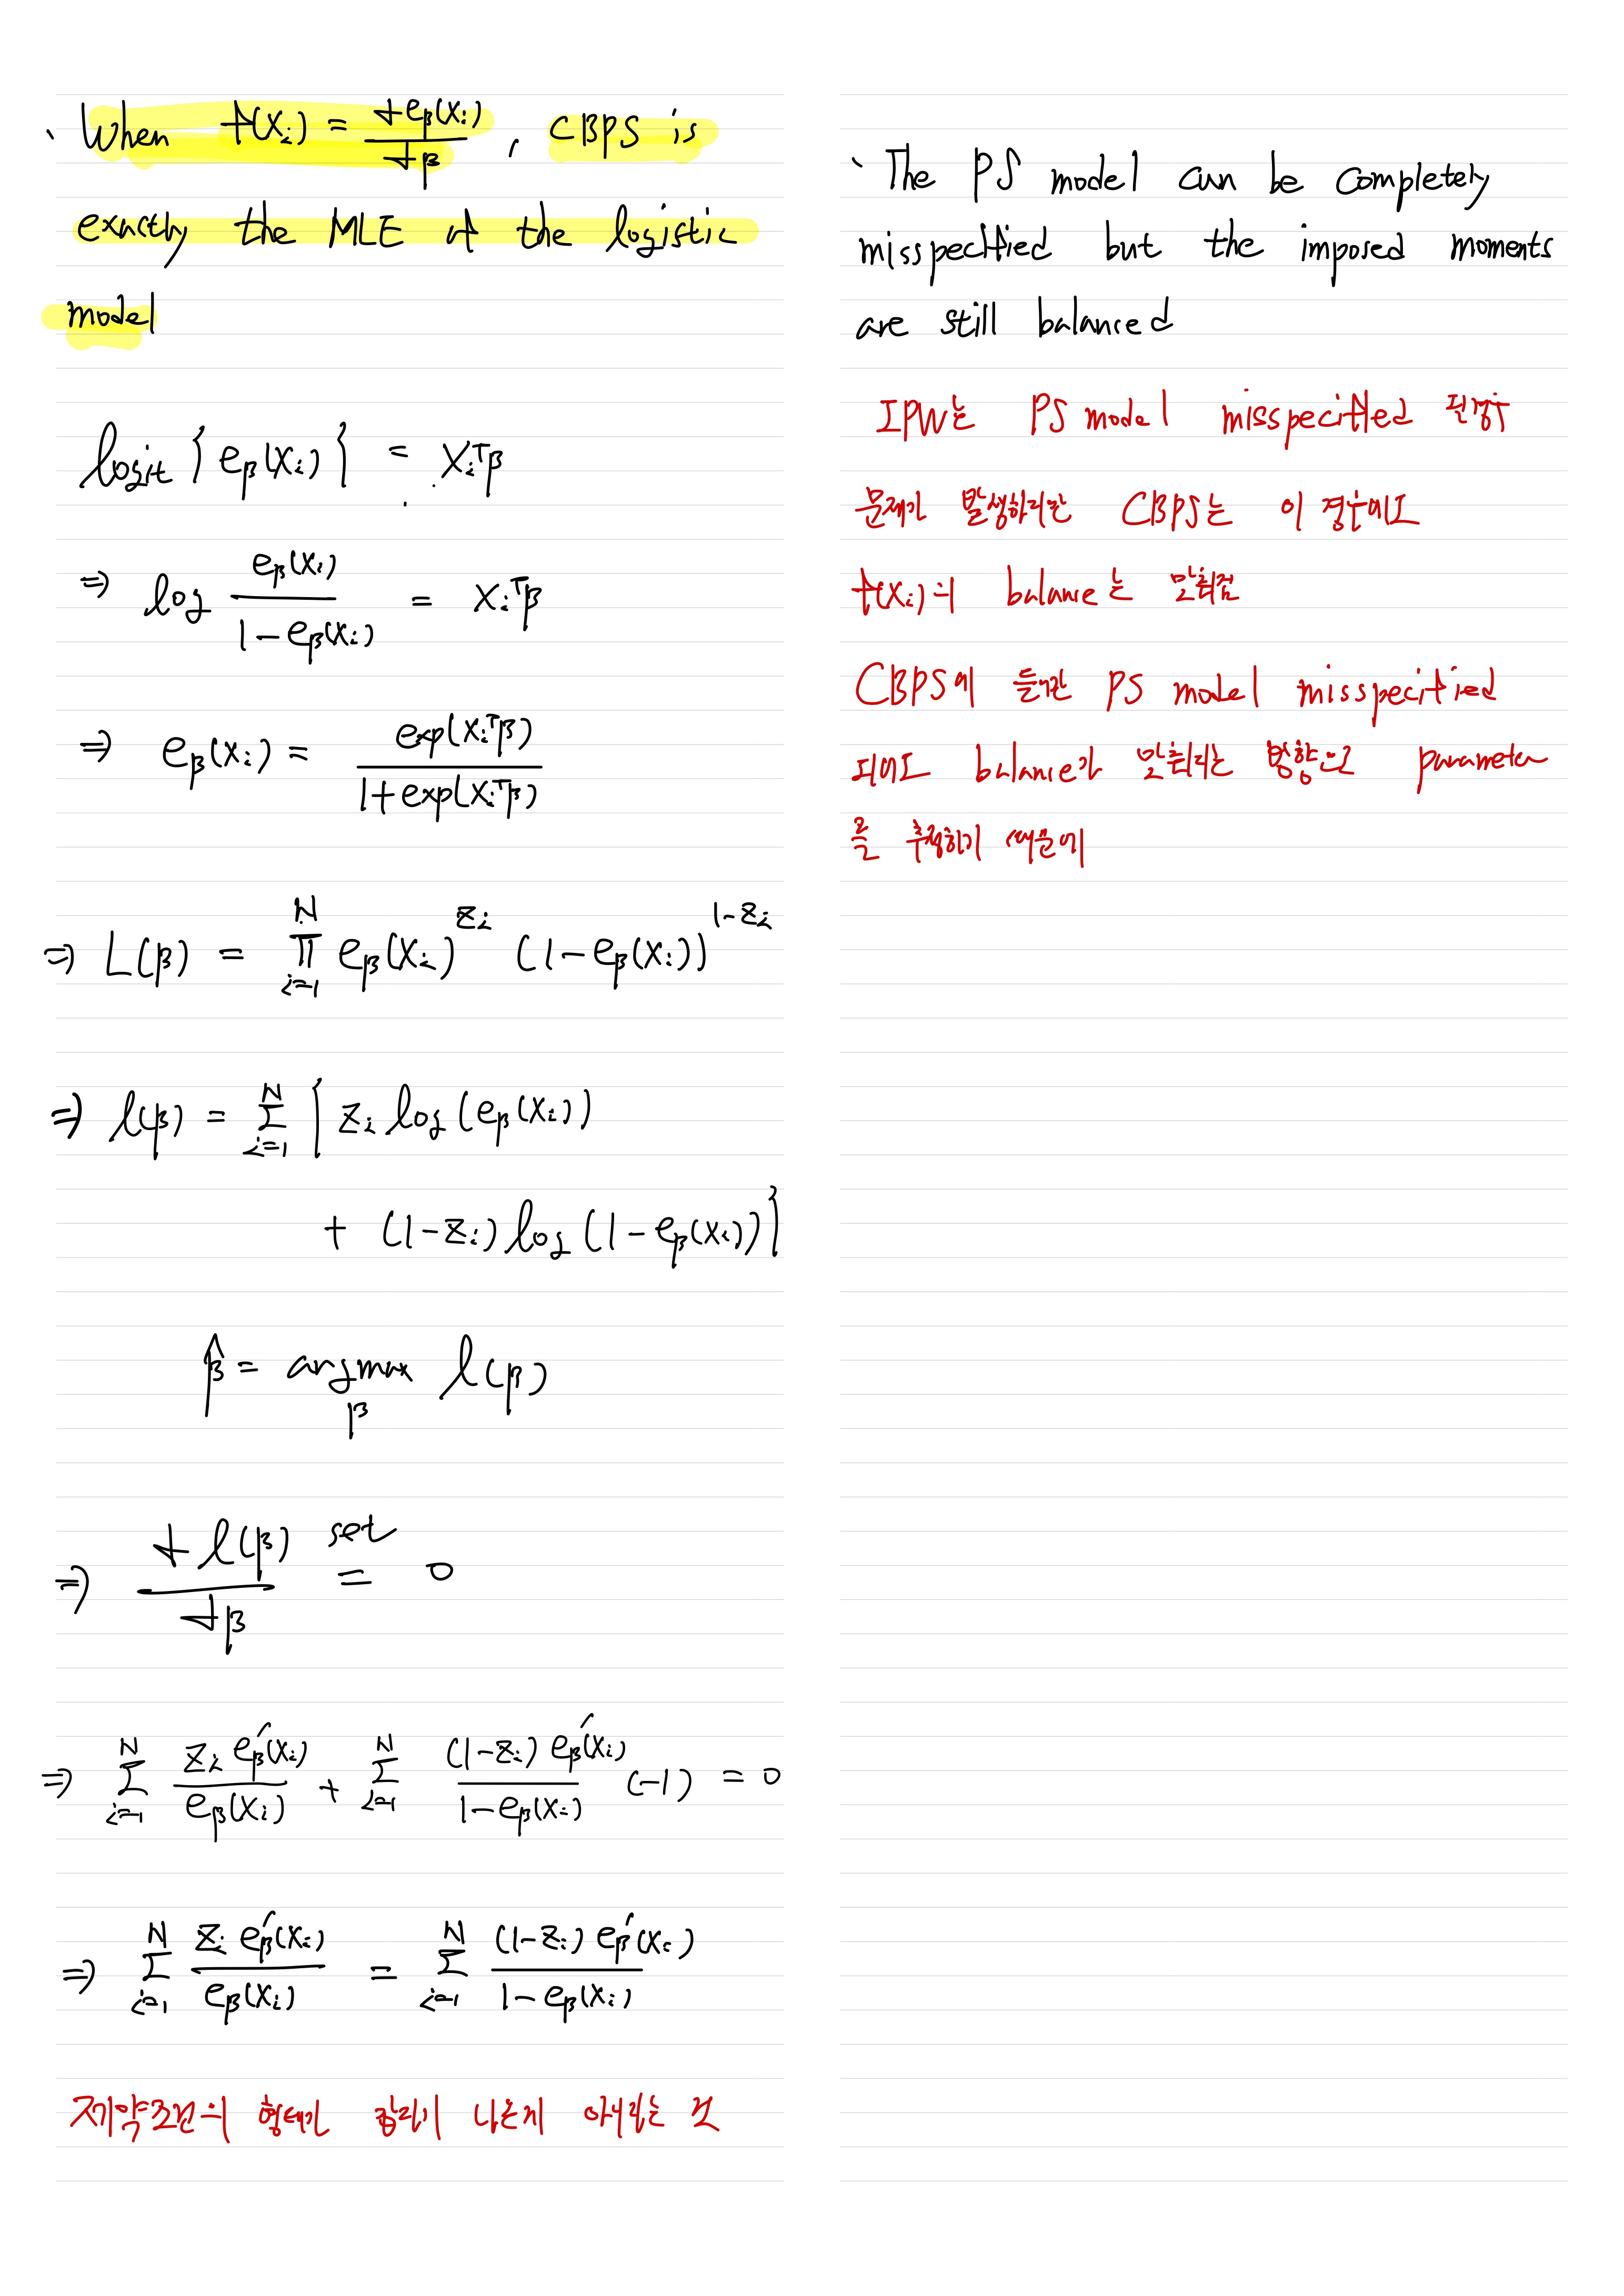 · When f(Xi) = d eβ(Xi) / dβ , CBPS is
exactly the MLE of the logistic
model
logit { eβ(Xi) } = XiᵀΒ
⇒ log eβ(Xi) / (1 − eβ(Xi)) = Xiᵀβ
⇒ eβ(Xi) = exp(Xiᵀβ) / (1 + exp(Xiᵀβ))
⇒ L(β) = ∏_{i=1}^{N} eβ(Xi)^{Zi} (1 − eβ(Xi))^{1−Zi}
⇒ l(β) = Σ_{i=1}^{N} { Zi log(eβ(Xi))
+ (1−Zi) log(1 − eβ(Xi)) }
β̂ = argmax_β l(β)
⇒ d l(β) / dβ set = 0
⇒ Σ_{i=1}^{N} Zi eβ′(Xi) / eβ(Xi) + Σ_{i=1}^{N} (1−Zi) eβ′(Xi) / (1−eβ(Xi)) (−1) = 0
⇒ Σ_{i=1}^{N} Zi eβ′(Xi) / eβ(Xi) = Σ_{i=1}^{N} (1−Zi) eβ′(Xi) / (1 − eβ(Xi))
제약조건의 형태가 갑자기 나온게 아니라는 것
· The PS model can be completely
misspecified but the imposed moments
are still balanced
IPW는 PS model misspecified 된경우
문제가 발생하지만 CBPS는 이 경우에도
f(Xi)의 balance는 맞춰짐
CBPS에 들어간 PS model misspecified
되어도 balance가 맞춰지는 방향으로 parameter
를 추정하기 때문에